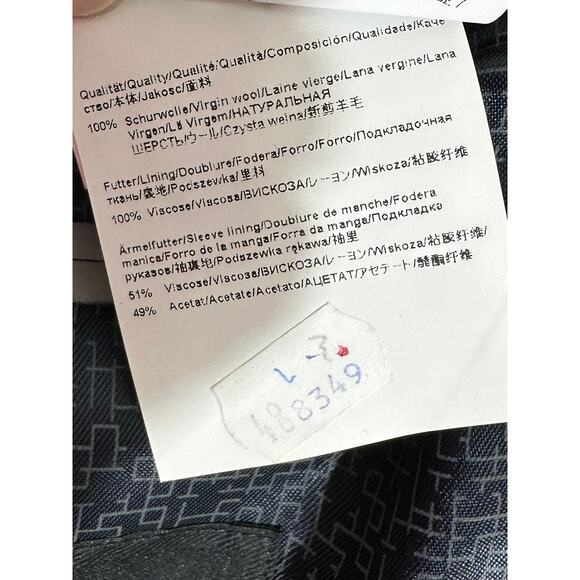 Qualität/Quality/Qualité/Qualità/Composición/Qualidade/Каче
ство/本体/Jakosc/面料
100% Schurwolle/Virgin wool/Laine vierge/Lana vergine/Lana
Virgen/Lã Virgem/НАТУРАЛЬНАЯ
ШЕРСТЬ/ウール/Czysta welna/新剪羊毛
Futter/Lining/Doublure/Fodera/Forro/Forro/Подкладочная
ткань/裏地/Podszewka/里料
100% Viscose/Viscosa/ВИСКОЗА/レーヨン/Wiskoza/粘胶纤维
Ärmelfutter/Sleeve lining/Doublure de manche/Fodera
manica/Forro de la manga/Forra da manga/Подкладка
рукавов/袖裏地/Podszewka rękawa/袖里
51% Viscose/Viscosa/ВИСКОЗА/レーヨン/Wiskoza/粘胶纤维/
49% Acetat/Acetate/Acetato/АЦЕТАТ/アセテート/醋酯纤维
488349